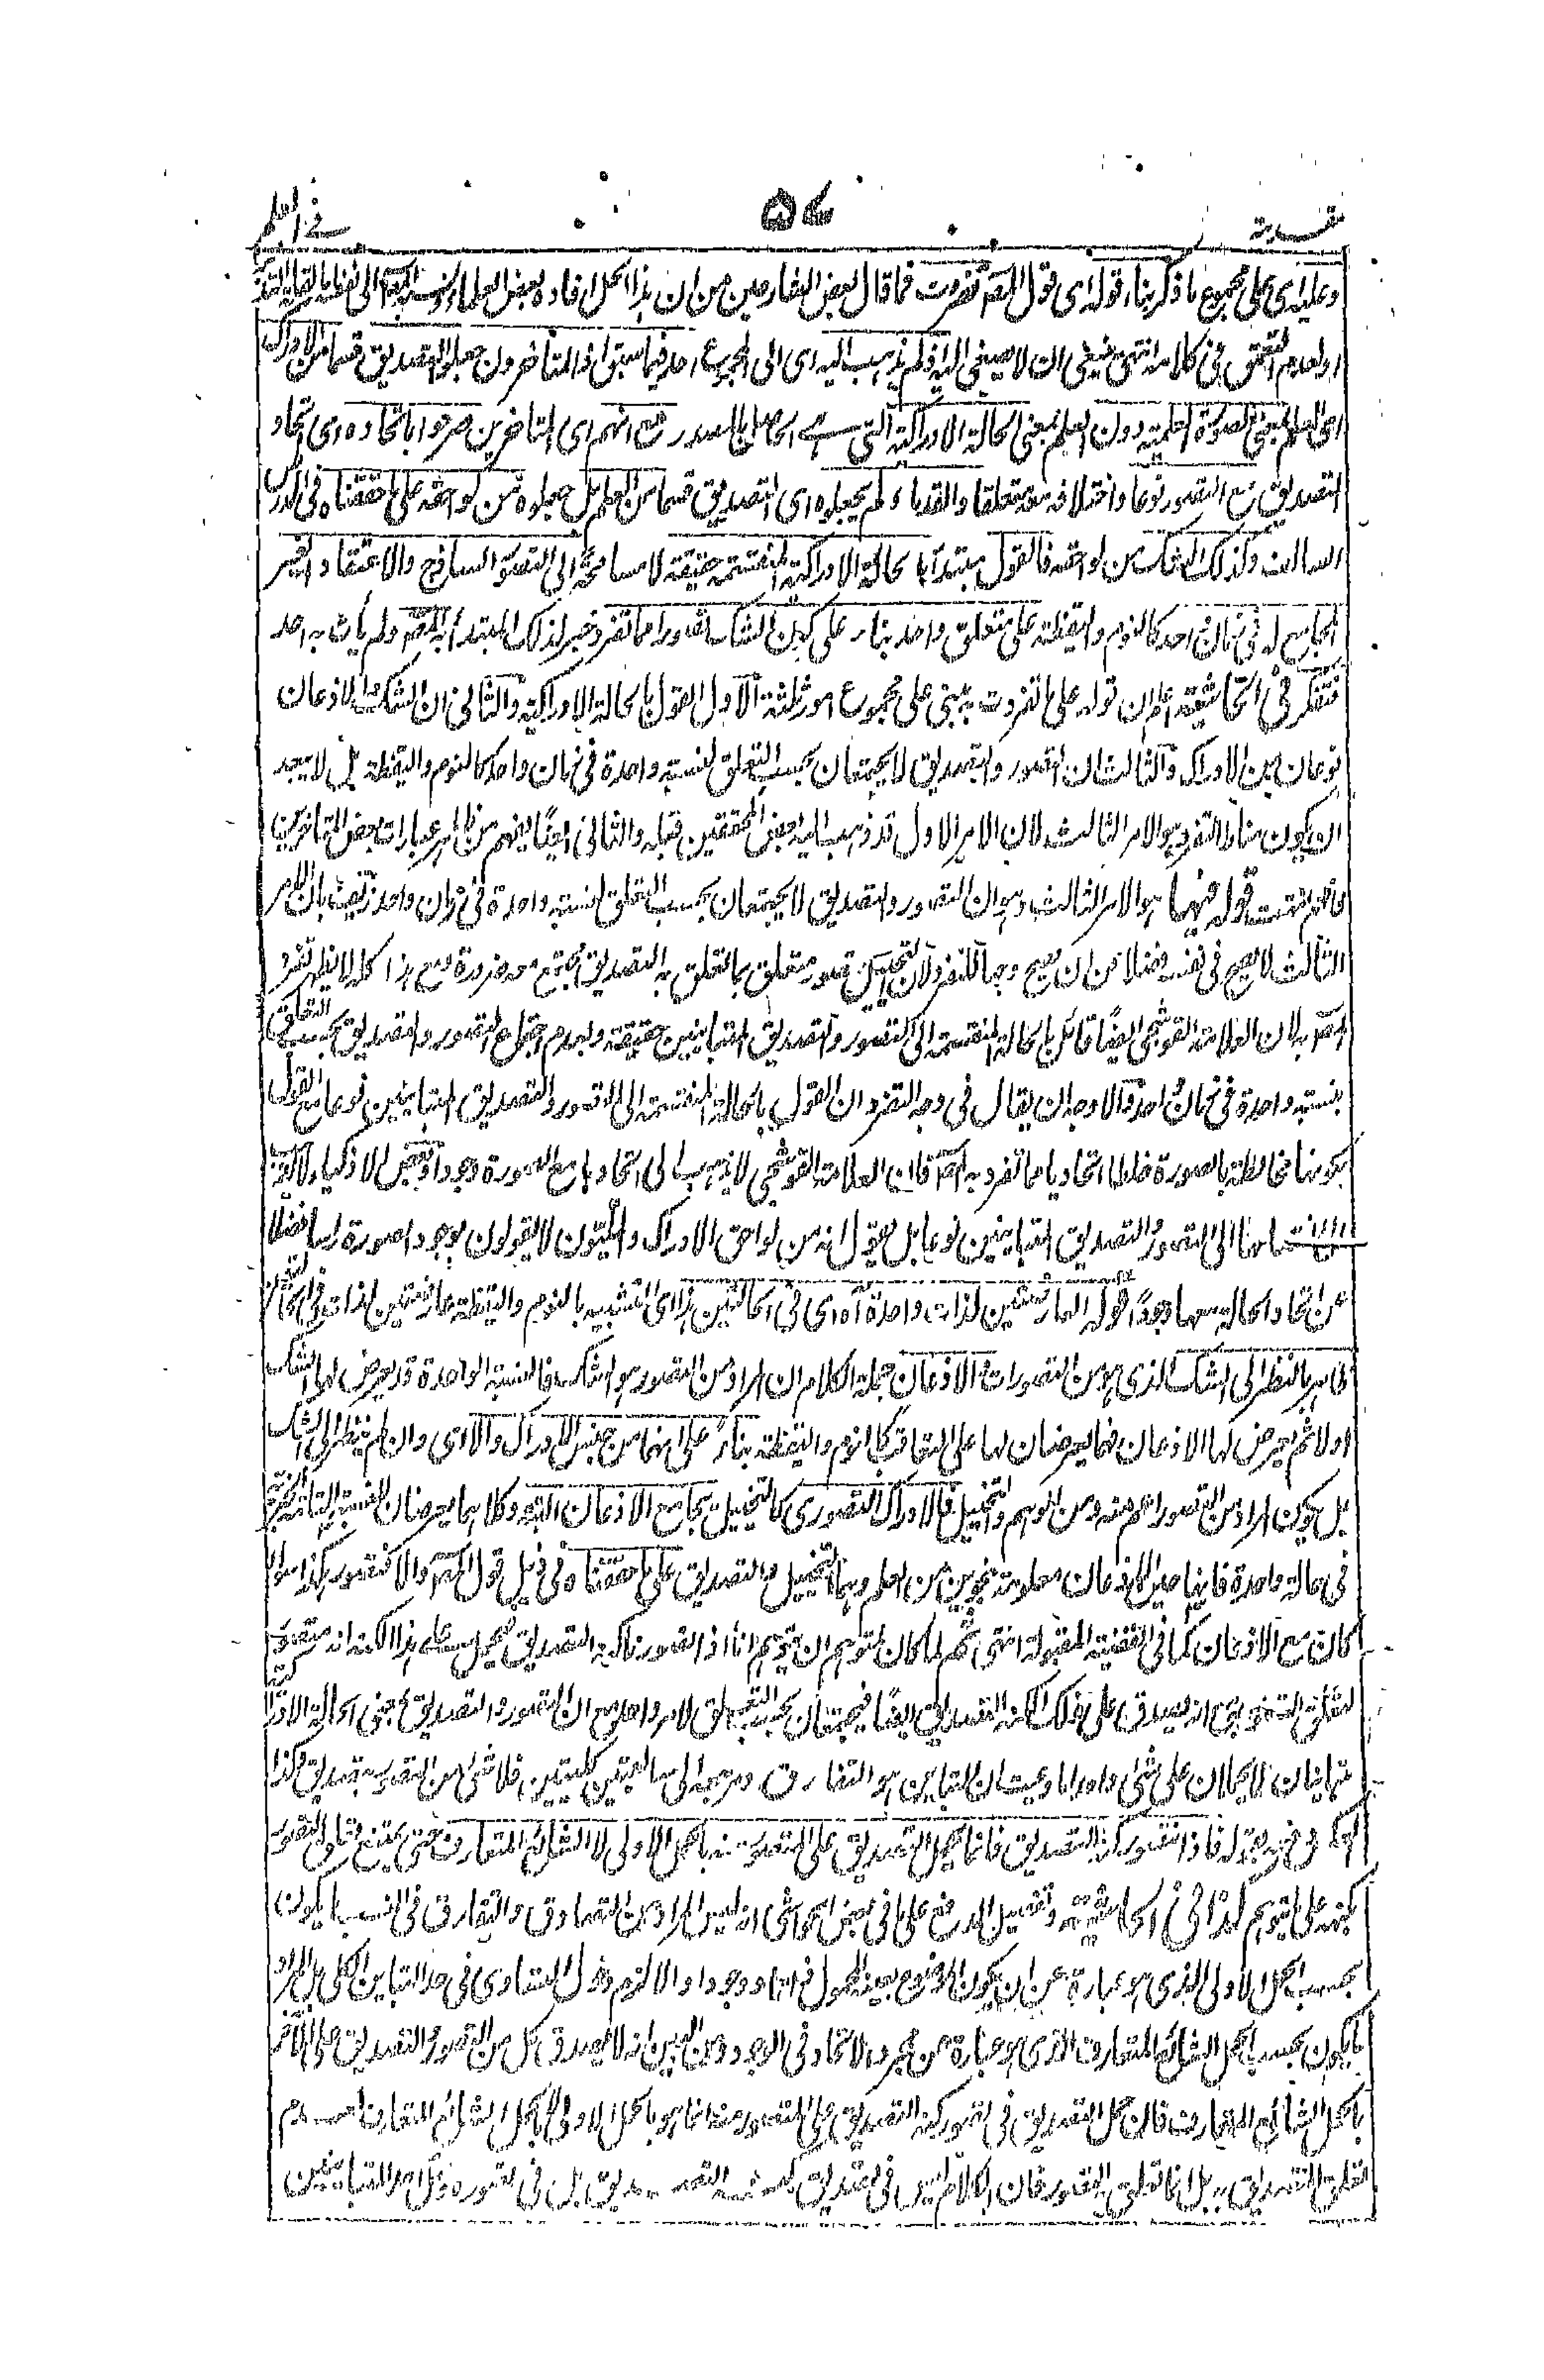 مقدمة ۵۷ في العلم
وعليه اى على مجموع ما ذكر بناء قوله اى قول المصر تفردت فما قال بعض العارصين من ان هذا الحل افاده بعض العلماء
او لعدم التعمق فى كلامه انتهى ينبغى ان لا يصغى اليه اذ لم يذهب اليه اى الى المجموع احد فيما سبق اذ المتاخرون جعلوا التصديق قسما من الادراك
اى العلم بمعنى الصورة العلمية دون العلم بمعنى الحالة الادراكية التى هى الحاصل بالمصدر مع انهم اى المتاخرين صرحوا باتحاده اى اتحاد
التصديق مع التصور نوعا واختلافه معه متعلقا والقدماء لم يجعلوه اى التصديق قسما من العلم بل جعلوه من لواحقه على ما حققناه فى الدرس
السالف وكذلك الشك من لواحقه فالقول مبتدأ بالحالة الادراكية المنقسمة حقيقة لا مسامحة الى التصور الساذج والاعتقاد الغير
المجامع له فى زمان احد كالنوم واليقظة على متعلق واحد بناء على كون الشك تصورا مما تفرد خبر لذلك المبتدأ به المصر ولم يأت به احد
فتفكر فى الحاشية اعلم ان قوله على ما تفردت به يبنى على مجموع امور ثلثة الاول القول بالحالة الادراكية والثانى ان الشك والاذعان
نوعان من الادراك والثالث ان التصور والتصديق لا يجتمعان بحسب التعلق لنسبة واحدة فى زمان واحد كالنوم واليقظة بل لا يبعد
ان يكون مناط التفرد هو الامر الثالث لان الامر الاول قد ذهب اليه بعض المحققين قبله والثانى ايضا يفهم من ظاهر عبارات بعض المتاخرين
فافهم انتهت قوله منها هو الامر الثالث وهو ان التصور والتصديق لا يجتمعان بحسب التعلق لنسبة واحدة فى زمان واحد زيفت بان الامر
الثالث لا يصح فى نفسه فضلا من ان يصح وجها للتفرد لان التخييل تصور متعلق بما تعلق به التصديق مجتمع معه ضرورة ومع هذا كله لا يظهر تفرد
المصر به لان العلامة القوشجى ايضا قائل بالحالة المنقسمة الى التصور والتصديق المتباينين حقيقة وبعدم اجتماع التصور والتصديق بحسب التعلق
بنسبة واحدة فى زمان احد فالاوجه ان يقال فى وجه التفرد ان القول بالحالة المنقسمة الى التصور والتصديق المتباينين نوعا مع القول
بكونها مخالطة بالصورة خلطا اتحاديا مما تفرد به المصر فان العلامة القوشجى لا يذهب الى اتحادها مع الصورة وجودا وبعض الاذكياء
الى التصور والتصديق المتباينين نوعا بل يقول انه من لواحق الادراك والمليّون لا يقولون بوجود الصورة رأسا فضلا
عن اتحاد الحالة معها وجودا قوله العارضتين لذات واحدة اه اى فى الحالتين هذا اى التشبيه بالنوم واليقظة عارضتين لذات
ظاهر بالنظر الى الشك الذى هو من التصورات والاذعان جملة الكلام ان المراد من التصور هو الشك فالنسبة الواحدة قد يعرض لها الشك
اولا ثم يعرض لها الاذعان فهما يعرضان لها على التعاقب كالنوم واليقظة بناء على انهما من جنس الادراك والا اى وان لم ينظر الى الشك
بل يكون المراد من التصور اعم منه ومن الوهم والتخييل فالادراك التصورى كالتخييل يجامع الاذعان البتة وكلاهما يعرضان للنسبة التامة الخبرية
فى حالة واحدة فانها حين الاذعان معلومة بنحوين من العلم وهما التخييل والتصديق على ما حققناه فى ذيل قول المصر والا فتصور ساذج سواء
كان مع الاذعان كما فى القضية المقبولة انتهى ثم لما كان لمتوهم ان يتوهم انا اذا تصورنا كنه التصديق يحمل على هذا الكنه انه متصور
لتعلق التصور به مع انه يصدق على ذلك الكنه التصديق ايضا فيجتمعان بحسب التعلق لامر واحد مع ان التصور والتصديق بمعنى الحالة الادراكية
متباينان لا يحملان على شئ واحد اما دريت ان التباين هو التفارق ومرجعه الى سالبتين كليتين فلا شئ من التصور بتصديق وكذا
العكس فاذا تصور كنه التصديق فانما يحمل التصديق على المتصور منه بالحمل الاولى لا الشائع المتعارف حتى يمتنع تعلق التصور
بكنهه على ما يتوهم كذا فى الحاشية وتفصيل الدفع على ما فى بعض الحواشى انه ليس المراد من التصادق والتفارق فى النسب ما يكون
بحسب الحمل الاولى الذى هو عبارة عن ان يكون الموضوع بعينه المحمول ذاتا ووجودا والا لزم دخول التساوى فى حد التباين الكلى بل المراد
ما يكون بحسب الحمل الشائع المتعارف الذى هو عبارة عن مجرد الاتحاد فى الوجود ومن البين انه لا يصدق كل من التصور والتصديق على الآخر
بالحمل الشائع المتعارف فان حمل التصديق فى تصور كنه التصديق على المتصور منه انما هو بالحمل الاولى لا بالحمل الشائع المتعارف لعدم
تعلق التصديق به بل انما تعلق التصور فان الكلام ليس فى تصديق كنه التصديق بل فى تصوره وحمل احد المتباينين